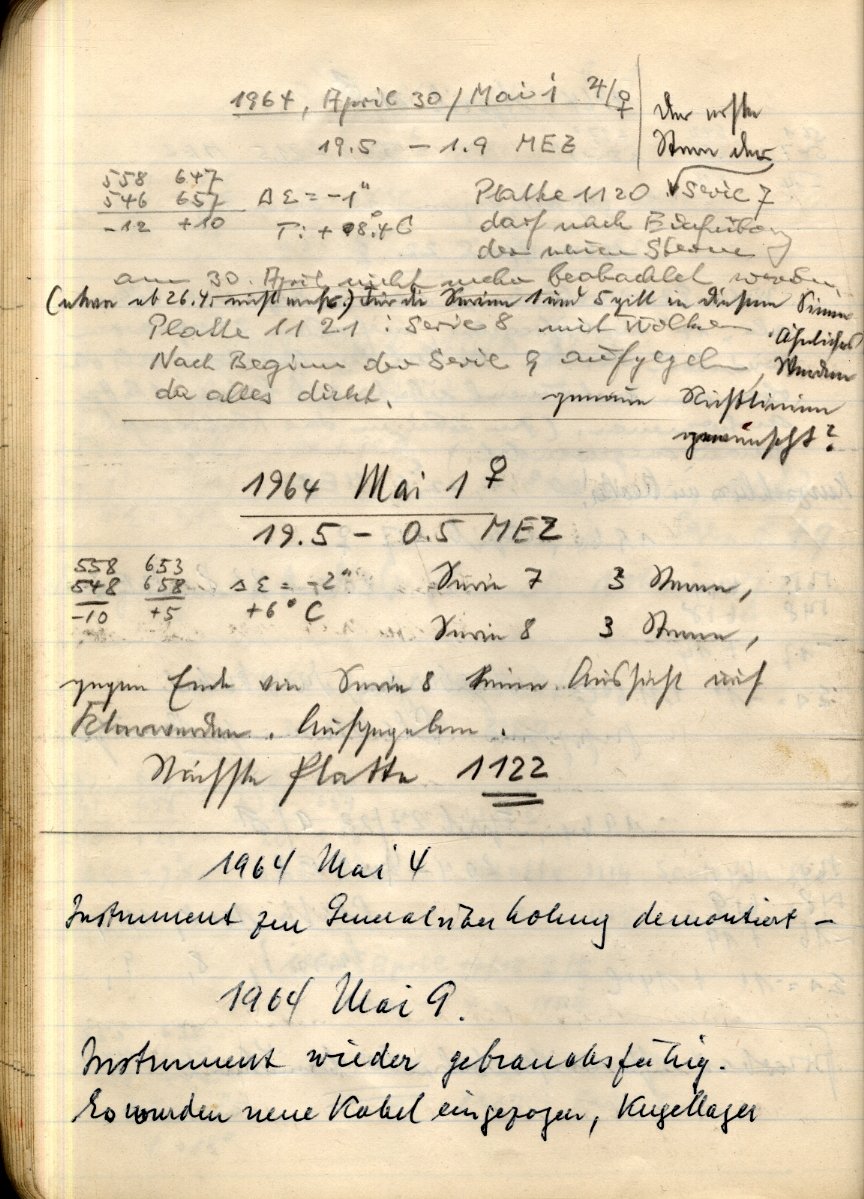 1964, April 30 / Mai 1 ♃/♀
19.5 – 1.9 MEZ
Der erste
Stern der
558 647
546 657
-12 +10
Δ Σ = -1"
T: + 8.4°C
Platte 1120 Serie 7
darf nach Einführung
der neuen Sterne
am 30. April nicht mehr beobachtet werden
(etwa ab 26.4. nicht mehr.) Für die Serien 1 und 5 gilt in diesem Sinne
Ähnliches
Platte 1121 : Serie 8 mit Wolken
Nach Beginn der Serie 9 aufgegeben,
da alles dicht.
Werden
genaue Richtlinien
gewünscht?
1964 Mai 1 ♀
19.5 – 0.5 MEZ
558 653
548 658
-10 +5
Δ Σ = -2"
+6° C
Serie 7 3 Sterne,
Serie 8 3 Sterne,
gegen Ende von Serie 8 keine Aussicht auf
Klarwerden. Aufgegeben.
Nächste Platte 1122
1964 Mai 4
Instrument zur Generalüberholung demontiert –
1964 Mai 9.
Instrument wieder gebrauchsfähig.
Es wurden neue Kabel eingezogen, Kugellager